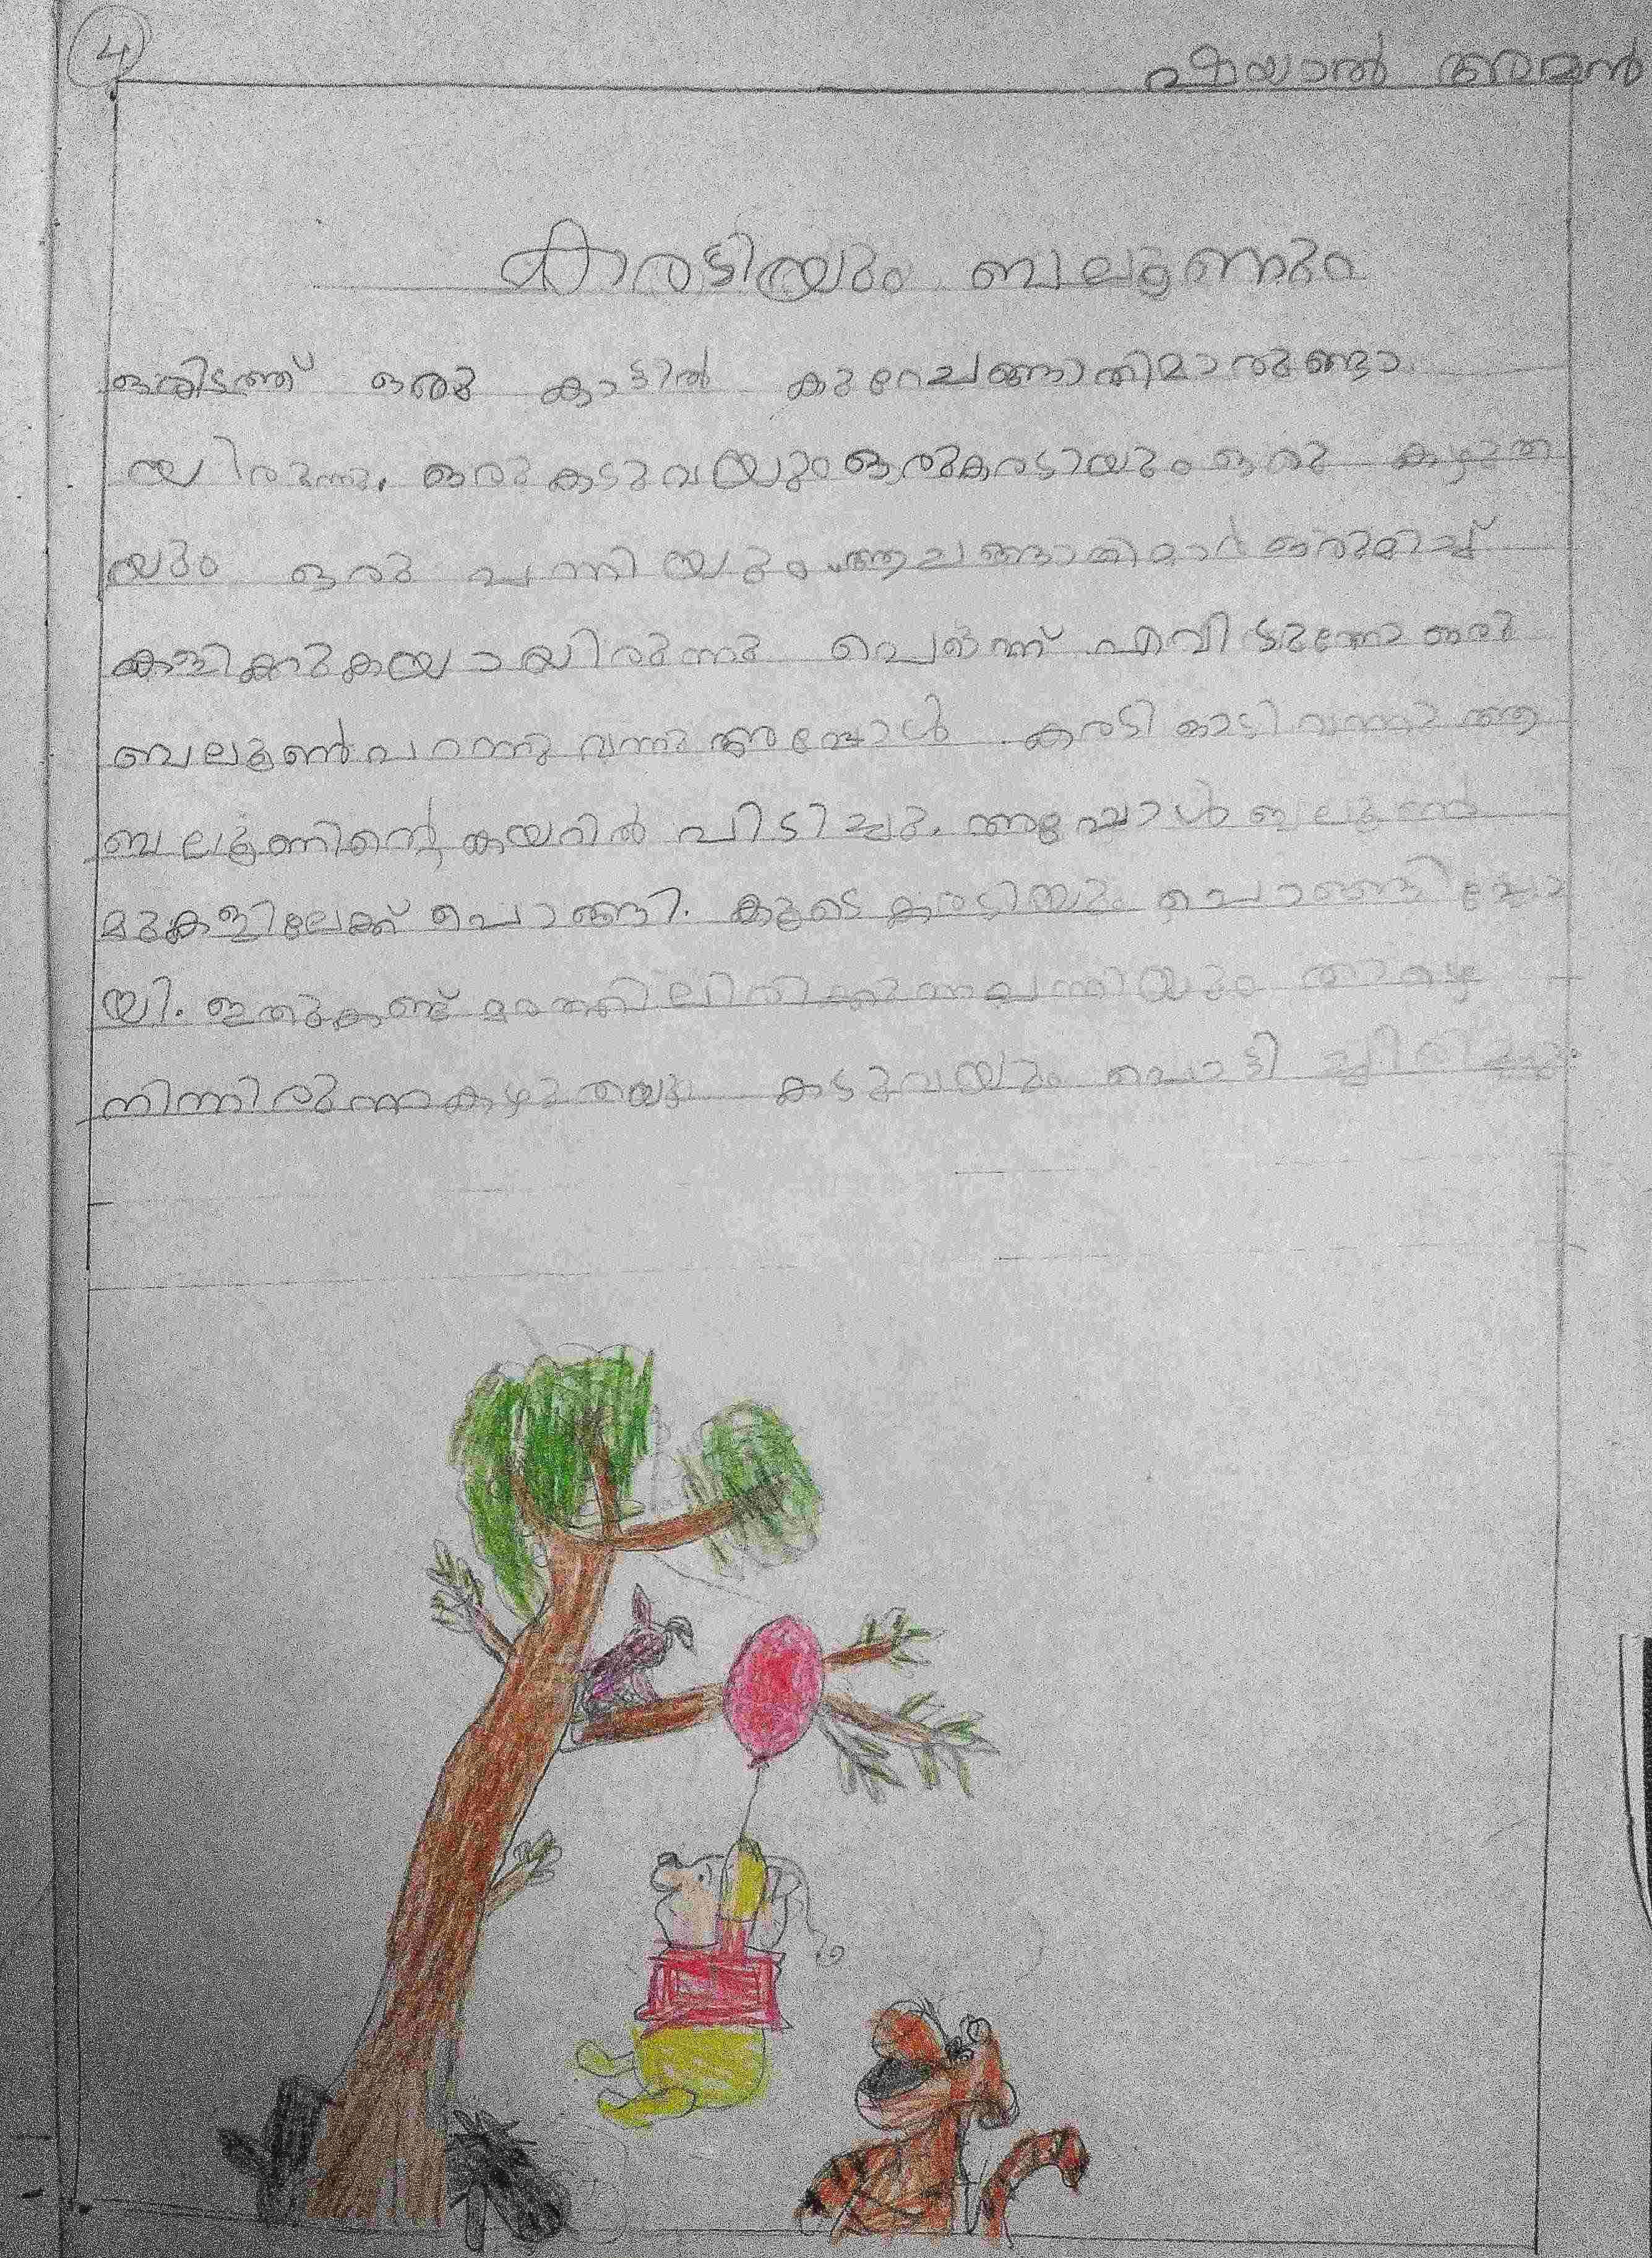 4
ഫയാൽ അമൻ
കരടിയും ബലൂണും
ഒരിടത്ത് ഒരു കാട്ടിൽ കുറേചങ്ങാതിമാരുണ്ടാ
യിരുന്നു. ഒരു കടുവയും ഒരുകരടിയും ഒരു കഴുത
യും ഒരു പന്നിയും ആ ചങ്ങാതിമാർ ഒരുമിച്ച്
കളിക്കുകയായിരുന്നു പെട്ടന്ന് എവിടുന്നോ ഒരു
ബലൂൺ പറന്നു വന്നു അപ്പോൾ കരടി ഓടി വന്നു ആ
ബലൂണിന്റെ കയറിൽ പിടിച്ചു. അപ്പോൾ ബലൂൺ
മുകളിലേക്ക് പൊങ്ങി. കൂടെ കരടിയും പൊങ്ങി പ്പോ
യി. ഇതുകണ്ട് മരത്തിലിരിക്കുന്ന പന്നിയും താഴെ
നിന്നിരുന്ന കഴുതയും കടുവയും പൊട്ടി ച്ചിരിച്ചു.